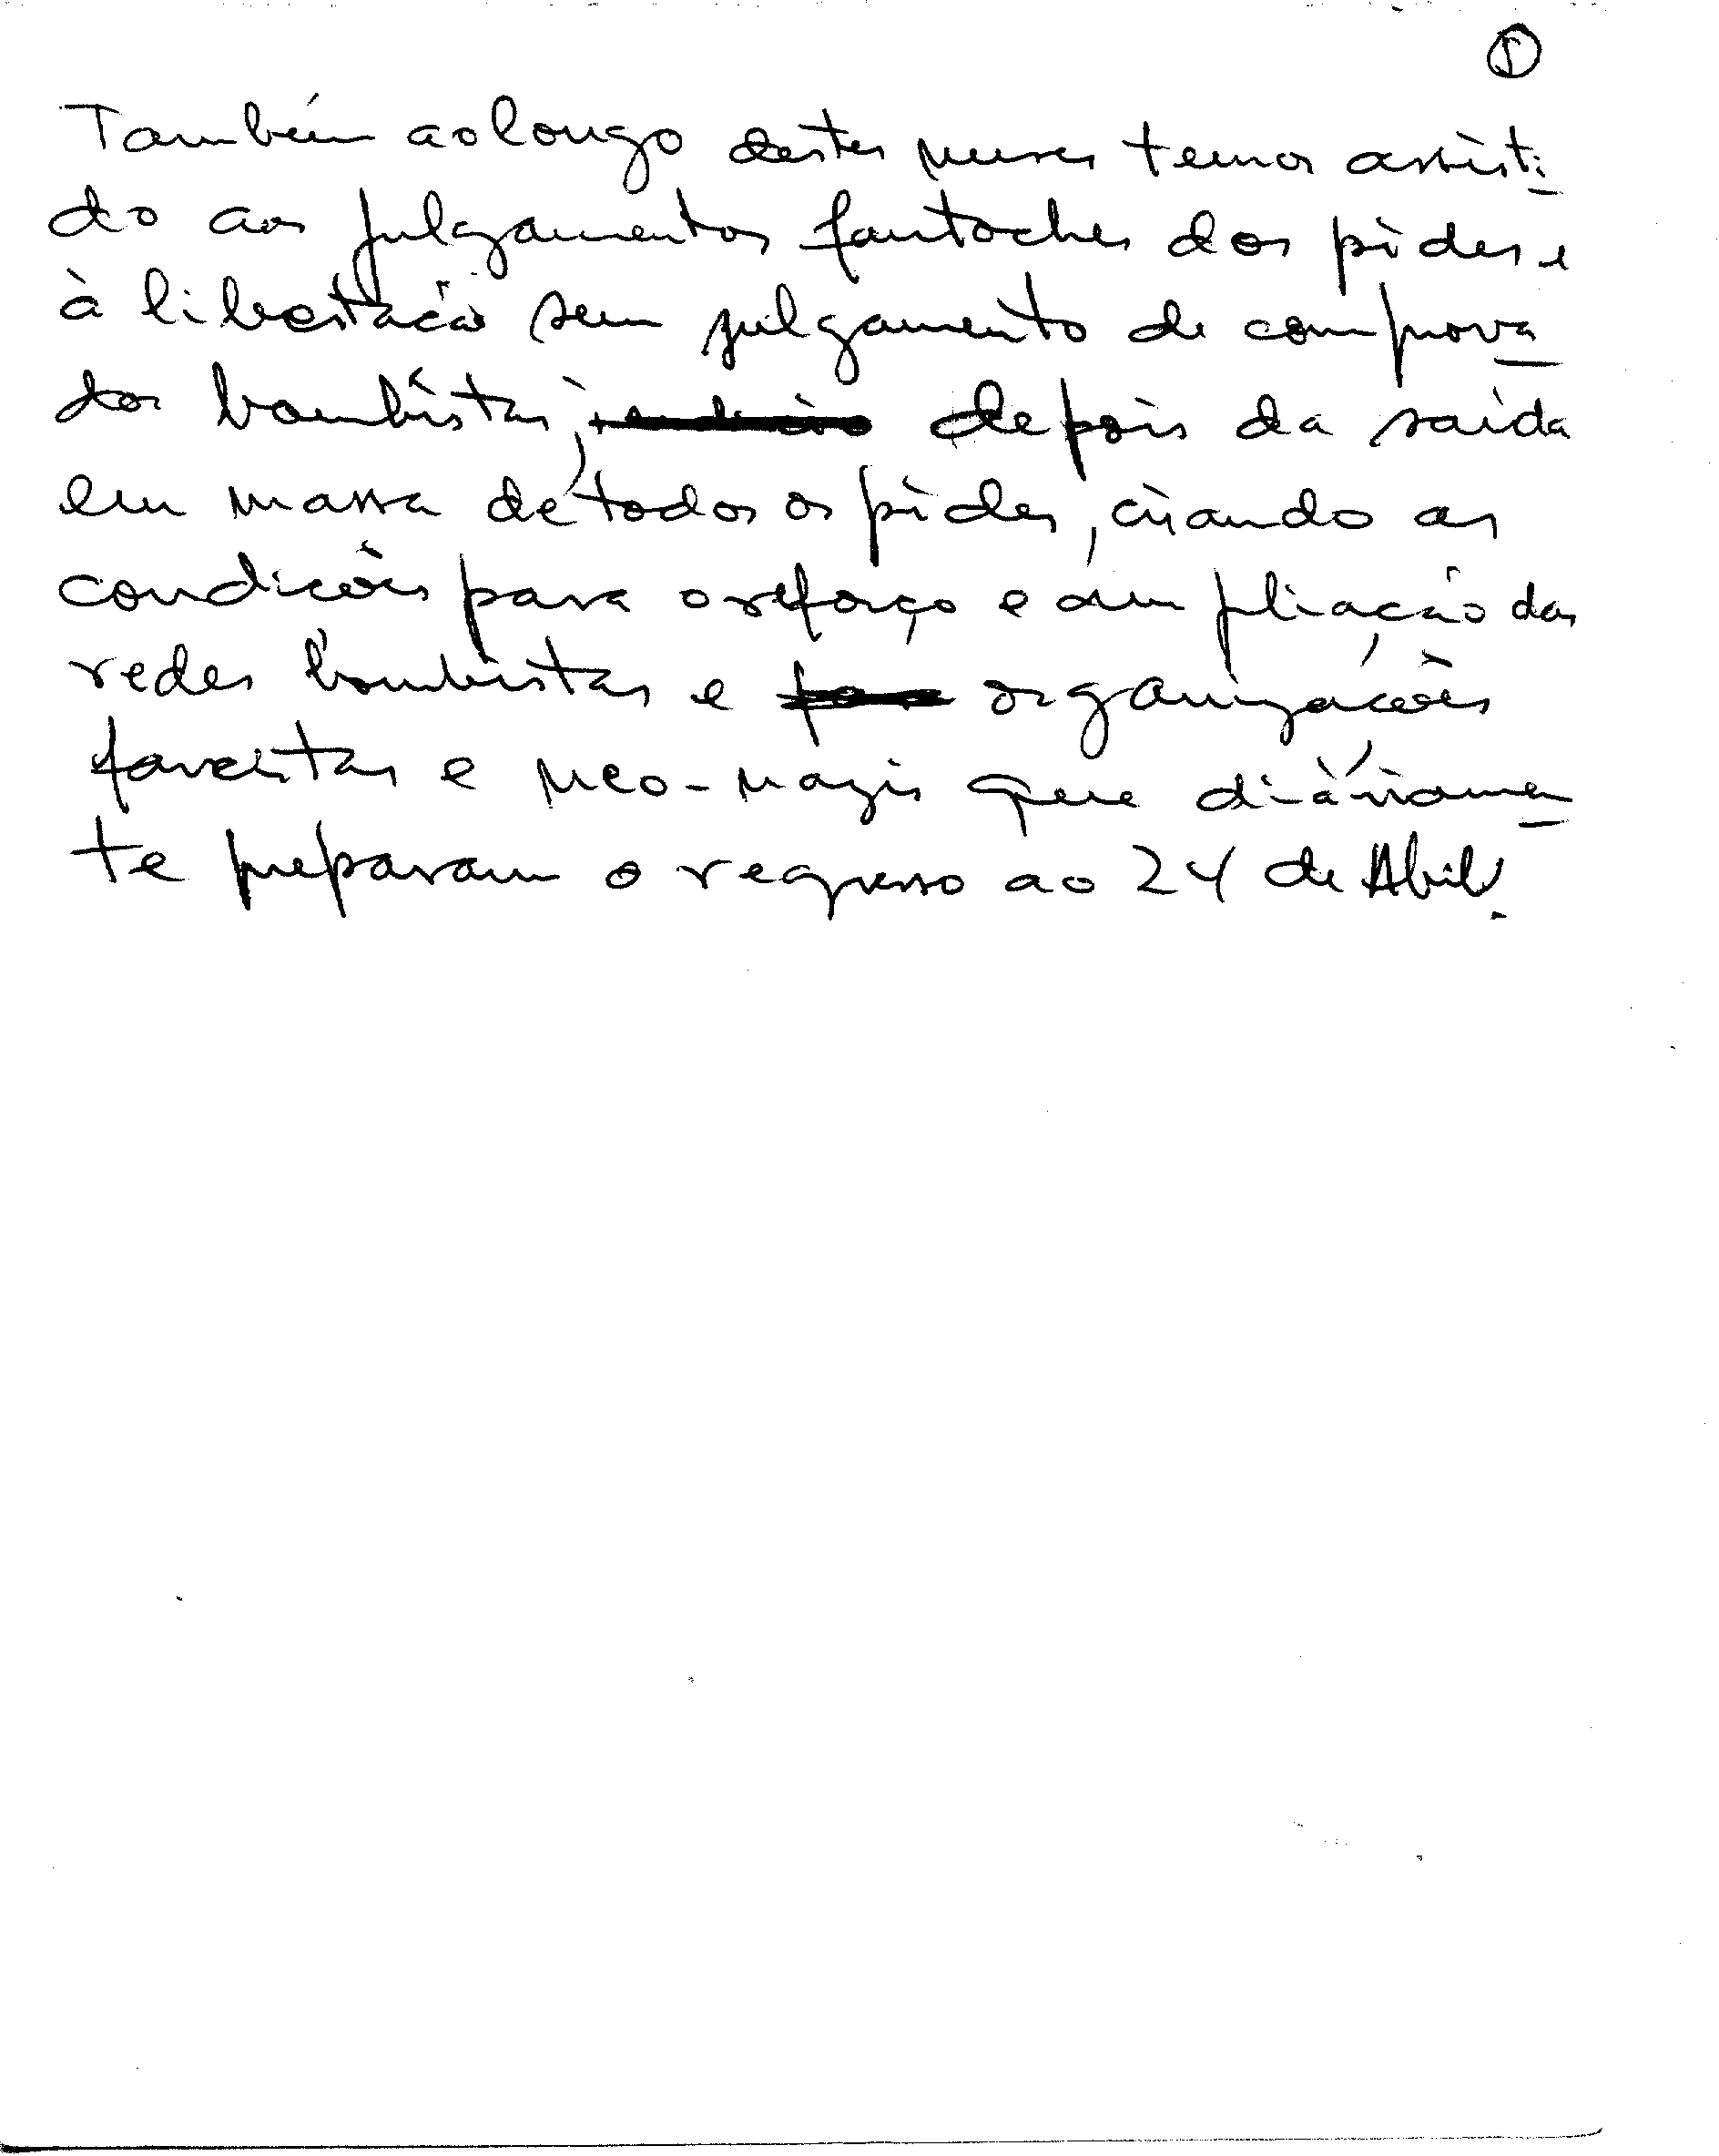 Também ao longo destes meses temos assisti-
do aos julgamentos fantoches dos pides e
à libertação sem julgamento de comprova-
dos bombistas, depois da saída
em massa de todos os pides, criando as
condições para o reforço e ampliação das
redes bombistas e organizações
fascistas e neo-nazis que diàriamen-
te preparam o regresso ao 24 de Abril.